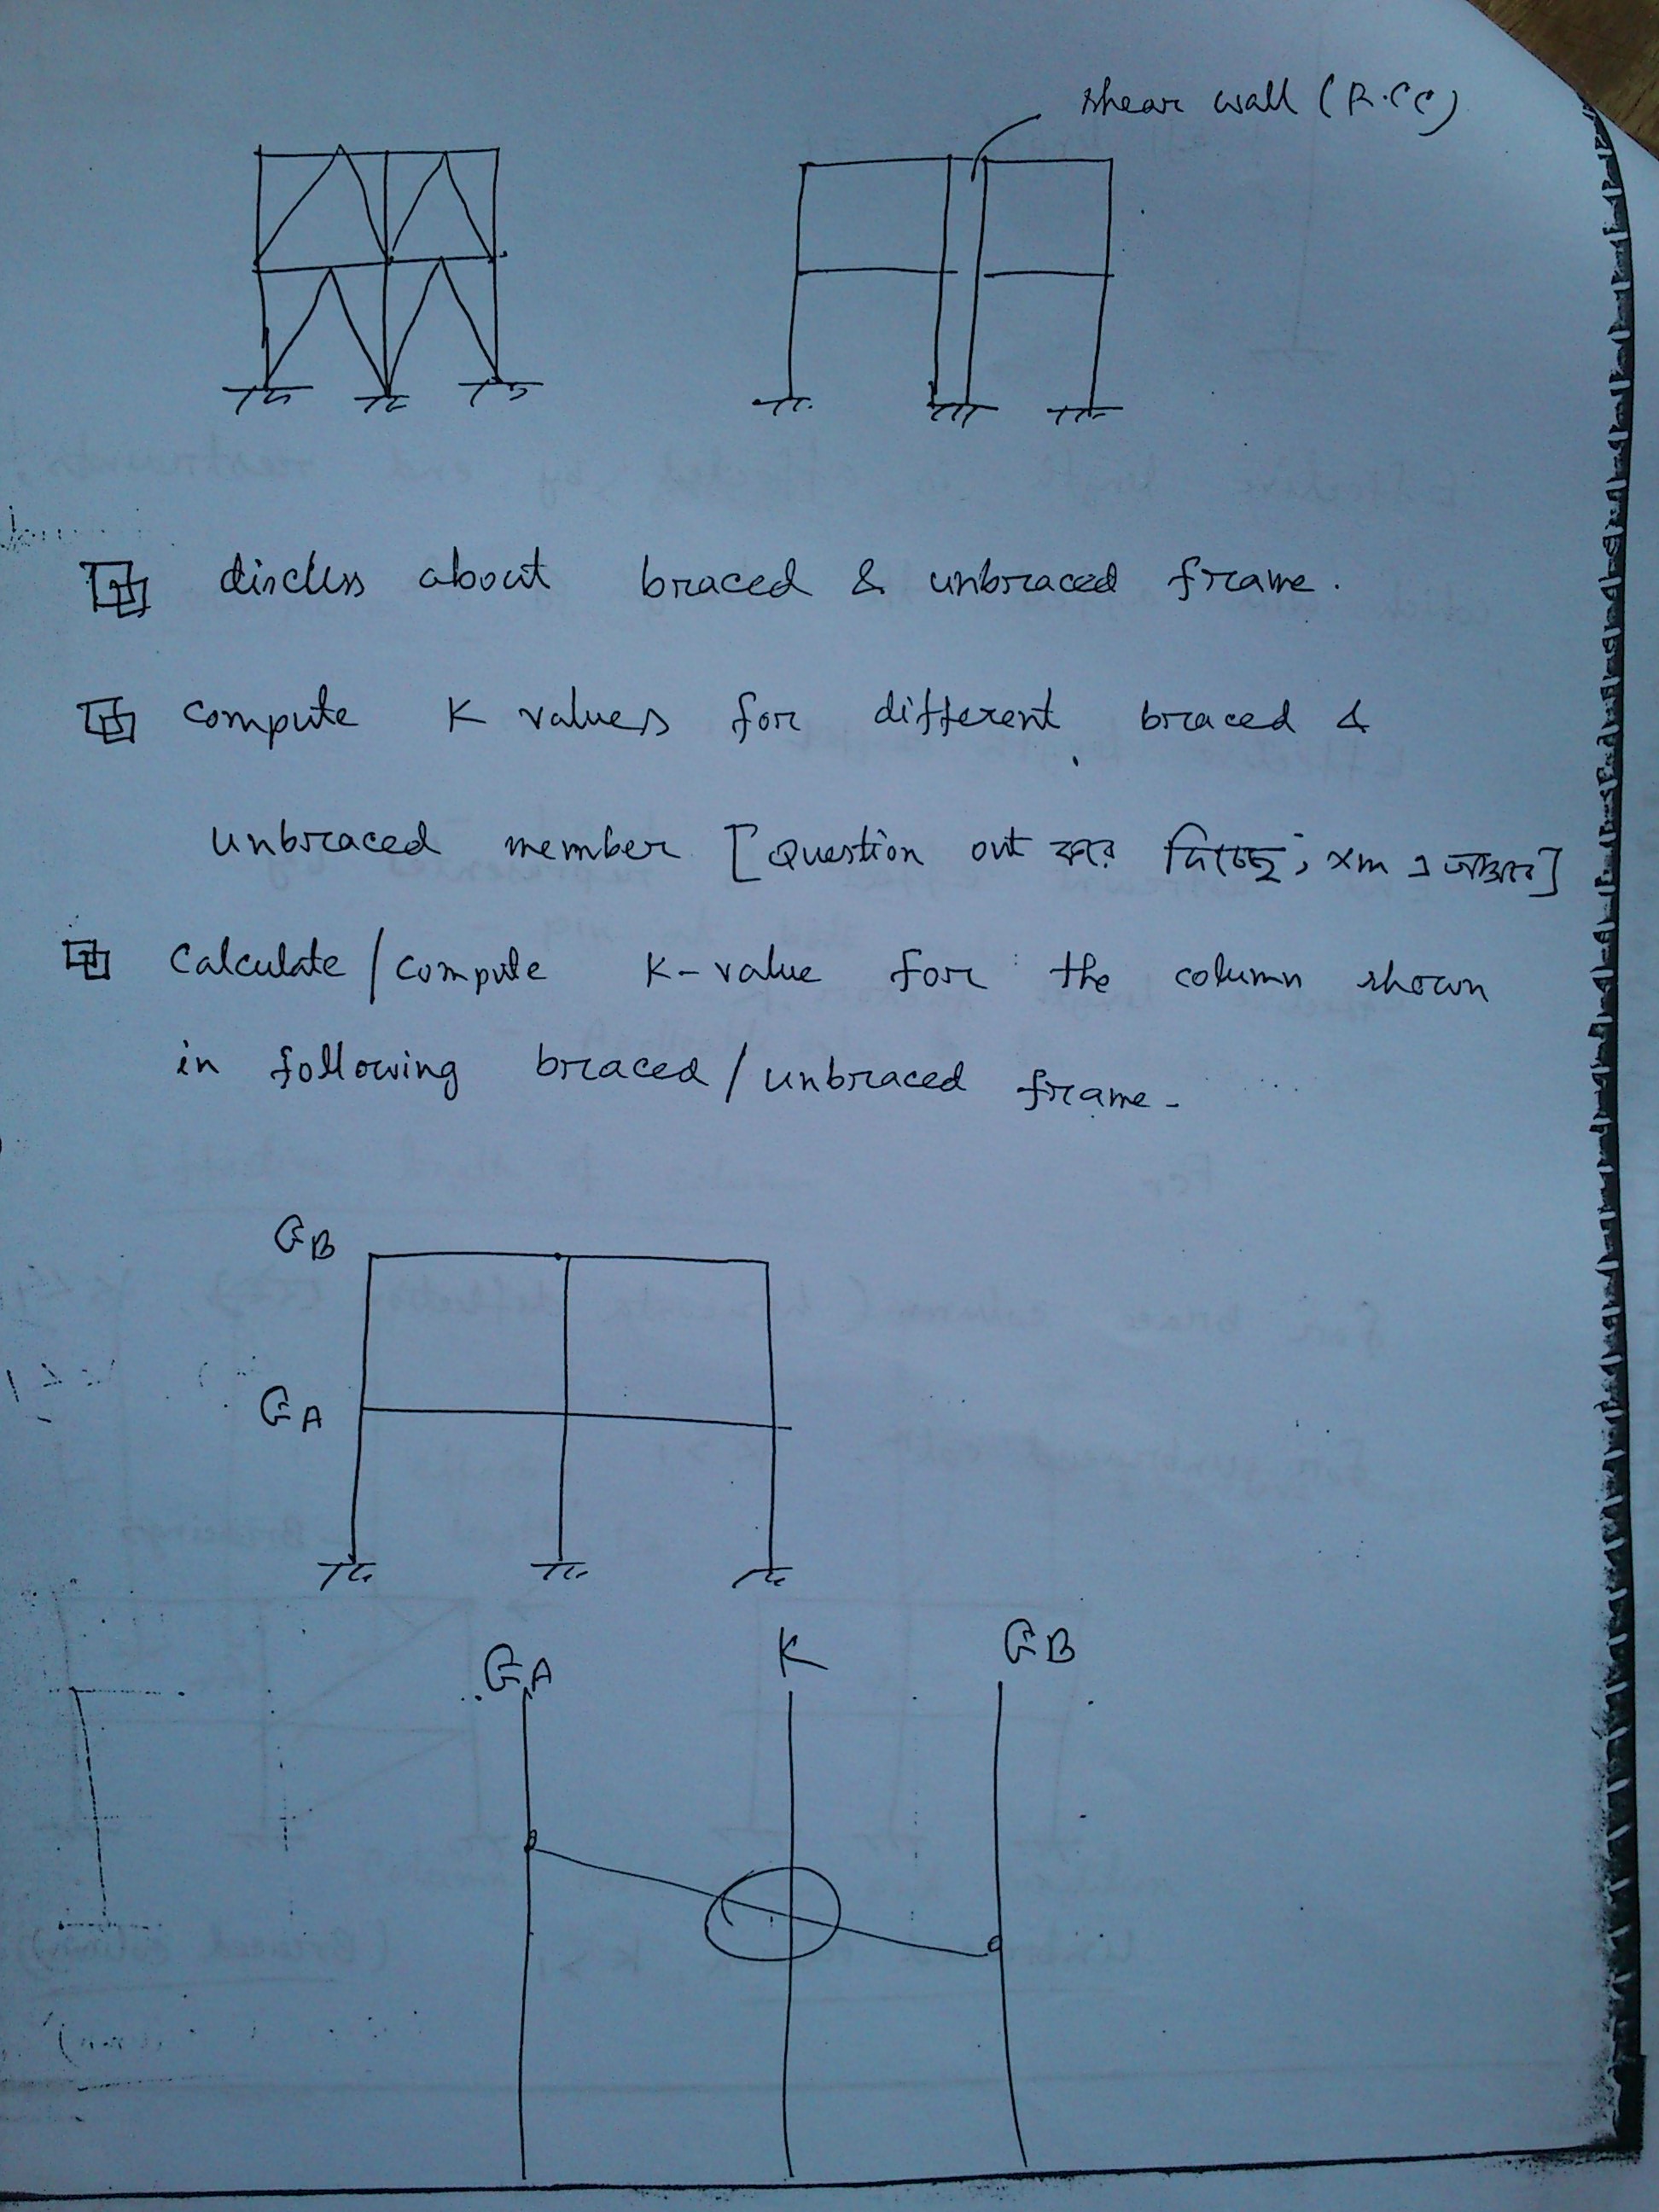 shear wall (R.CC)
discuss about braced & unbraced frame.
compute K values for different braced &
unbraced member [Question out করে দিচ্ছে, xm এ আসবে]
Calculate/compute K-value for the column shown
in following braced/unbraced frame-
GB
GA
GA K GB